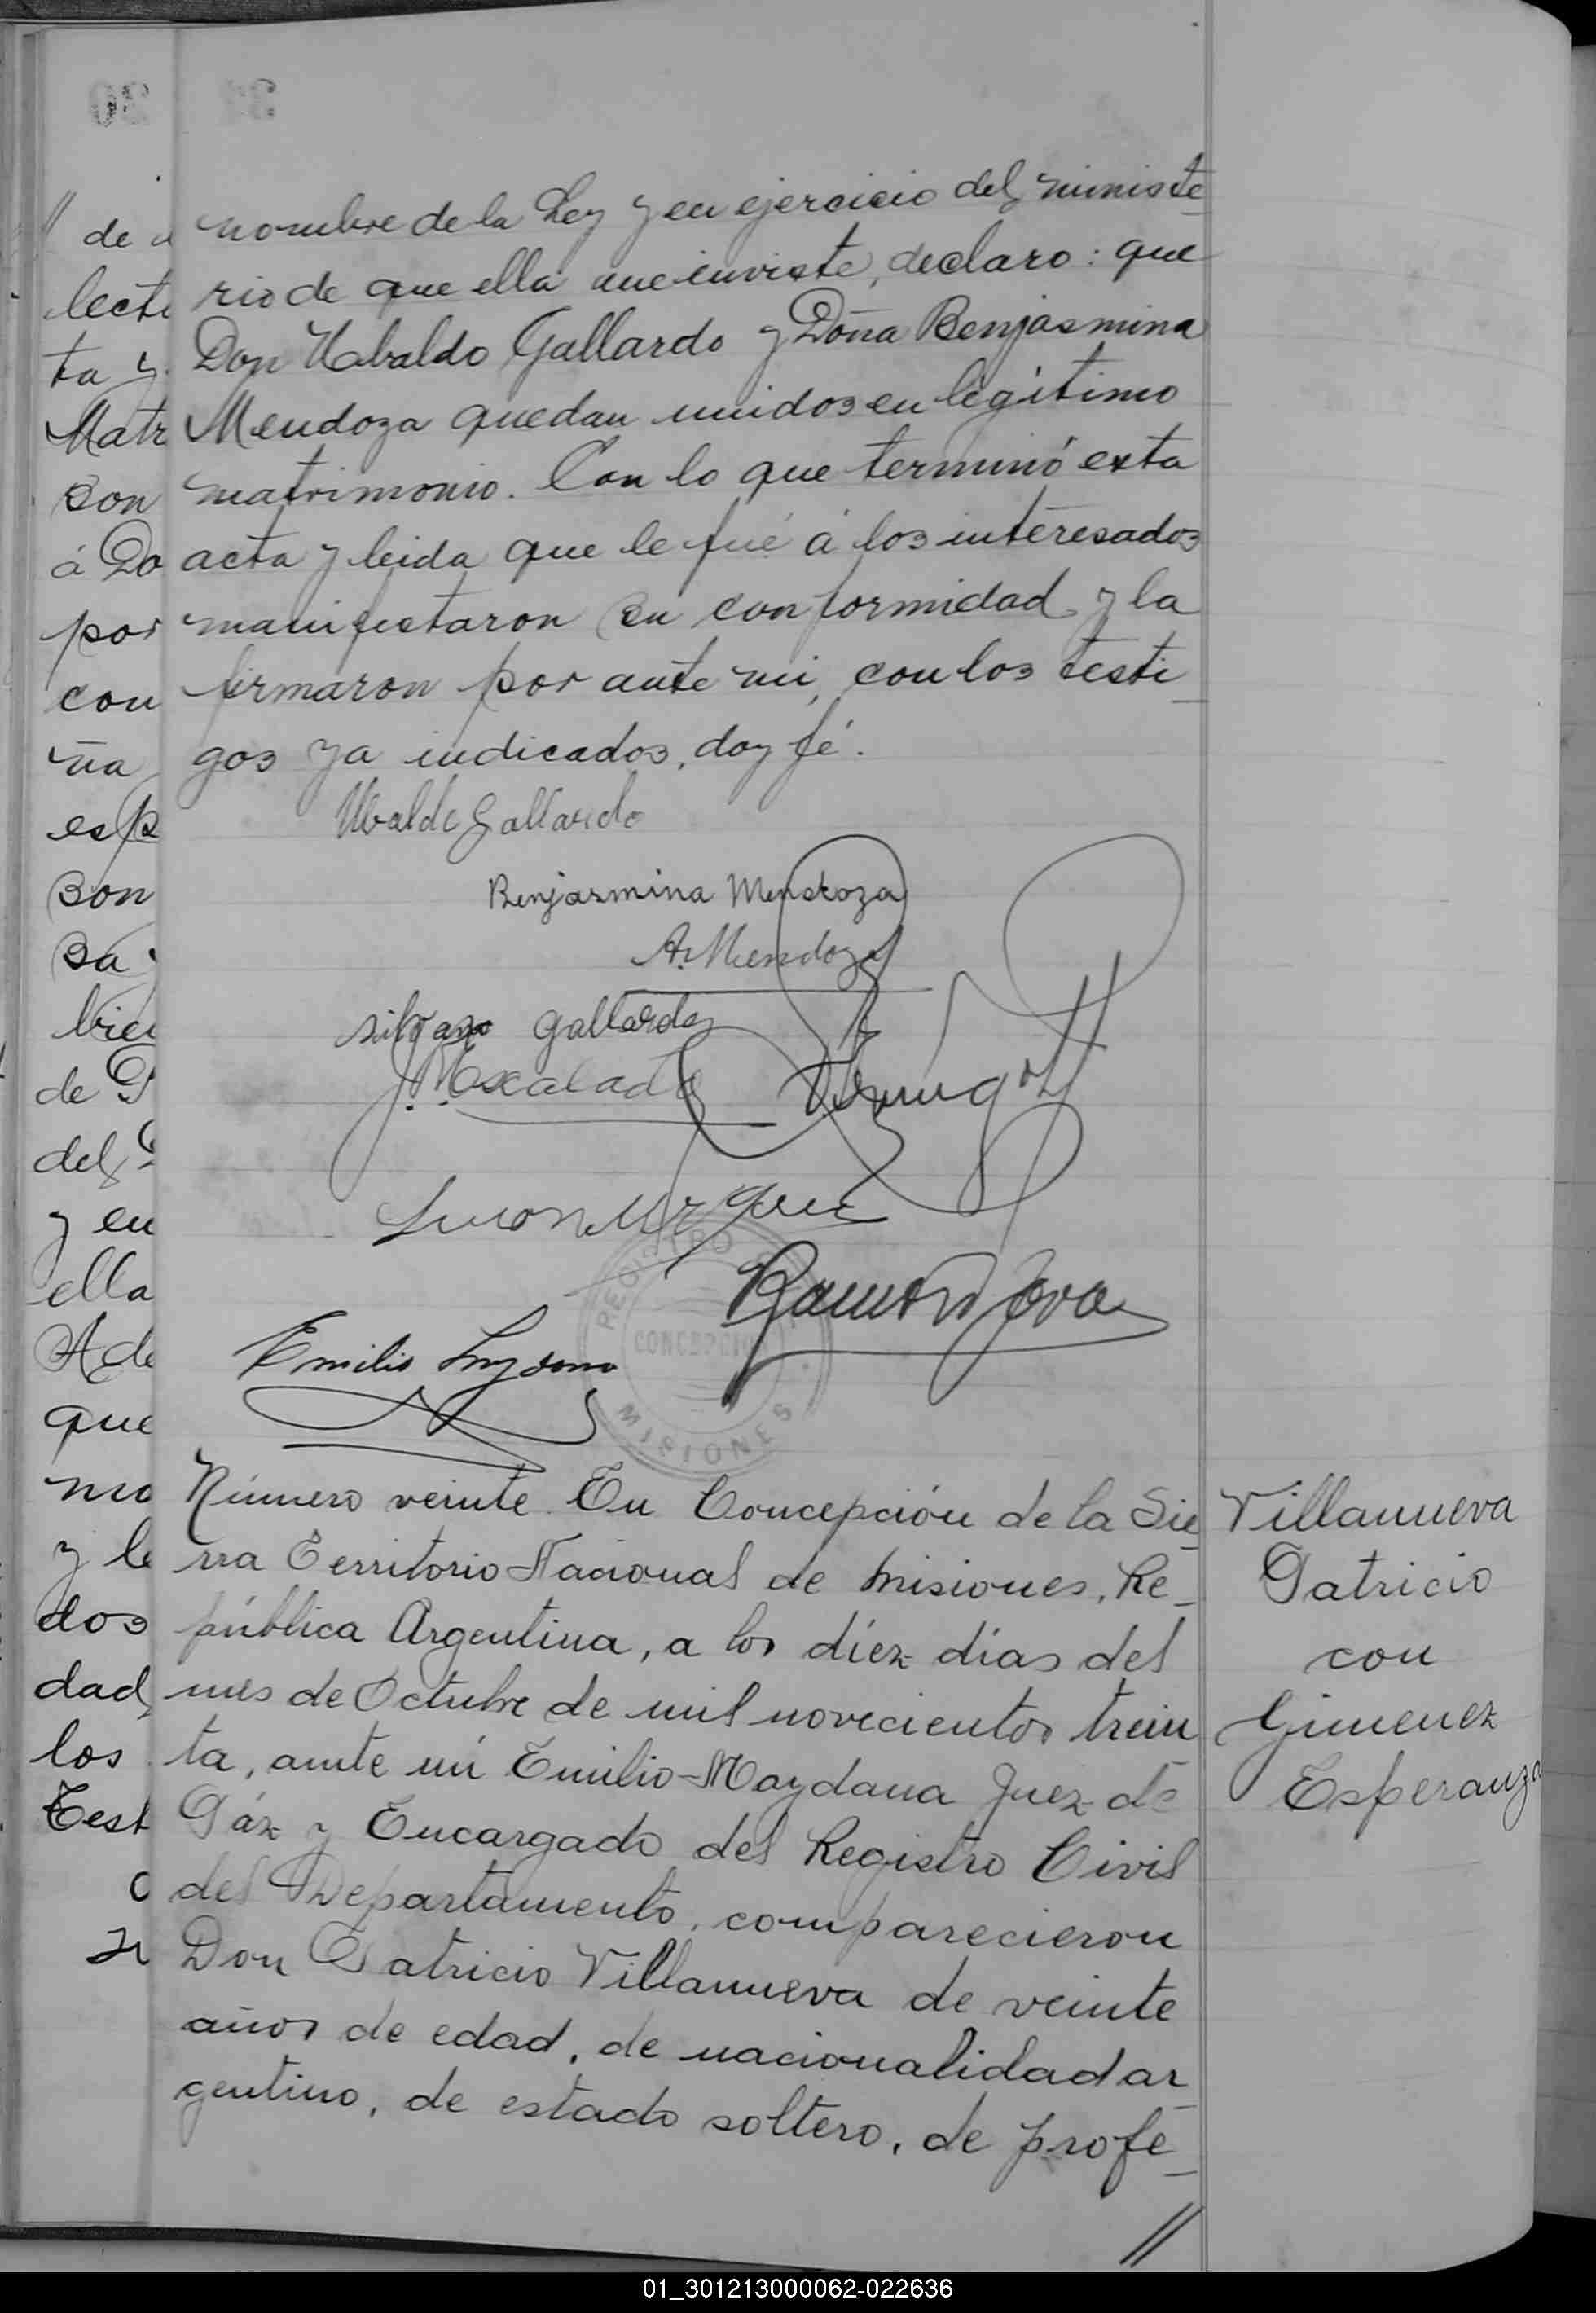 nombre de la Ley y en ejercicio del ministe_
rio de que ella me inviste, declaro: que
Don Ubaldo Gallardo y Doña Benjasmina
Mendoza quedan unidos en legítimo
matrimonio. Con lo que terminó esta
acta y leida que le fué á los interesados
manifestaron su conformidad y la
firmaron por ante mi, con los testi_
gos ya indicados, doy fé.
Ubaldo Gallardo
Benjasmina Mendoza
A. Mendoza
Gallardo
REGISTRO
CONCEPCION
MISIONES
Emilio
Número veinte. En Concepción de la Sie_
rra Territorio Nacional de Misiones, Re_
pública Argentina, a los diez días del
mes de Octubre de mil novecientos trein_
ta, ante mí Emilio Maydana Juez de
Páz y Encargado del Registro Civil
del Departamento, comparecieron
Don Patricio Villanueva de veinte
años de edad, de nacionalidad ar_
gentino, de estado soltero, de profe_
//
Villanueva
Patricio
con
Gimenez
Esperanza
//
de
lect
ta y
Matr
son
á Do
por
con
ña
esp
son
sa
bien
de
del
y en
ella
que
mo
y le
dos
dad,
los
Test
01_301213000062-022636